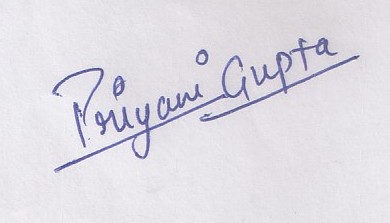 Priyani Gupta